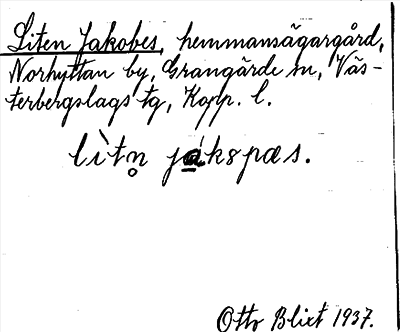 Liten Jakobes, hemmansägargård,
Norhyttan by, Grangärde sn, Väs-
terbergslags tg, Kopp. l.
lìtn̥ ják8pæs.
Otto Blixt 1937.